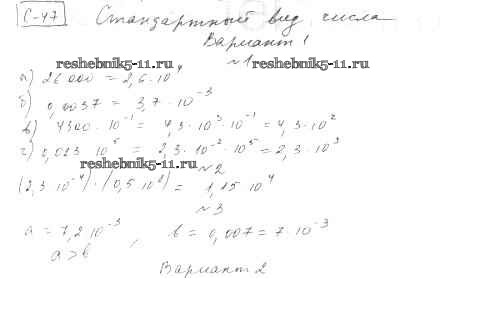 С-47 Стандартный вид числа
Вариант 1
reshebnik5-11.ru ~1 reshebnik5-11.ru
а) 26 000 = 2,6 · 10⁴
б) 0,0037 = 3,7 · 10⁻³
в) 4300 · 10⁻¹ = 4,3 · 10³ · 10⁻¹ = 4,3 · 10²
г) 0,023 · 10⁵ = 2,3 · 10⁻² · 10⁵ = 2,3 · 10³
reshebnik5-11.ru ~2
(2,3 · 10⁻⁴) · (0,5 · 10⁸) = 1,15 · 10⁴
~3
a = 7,2 · 10⁻³, b = 0,007 = 7 · 10⁻³
a > b
Вариант 2